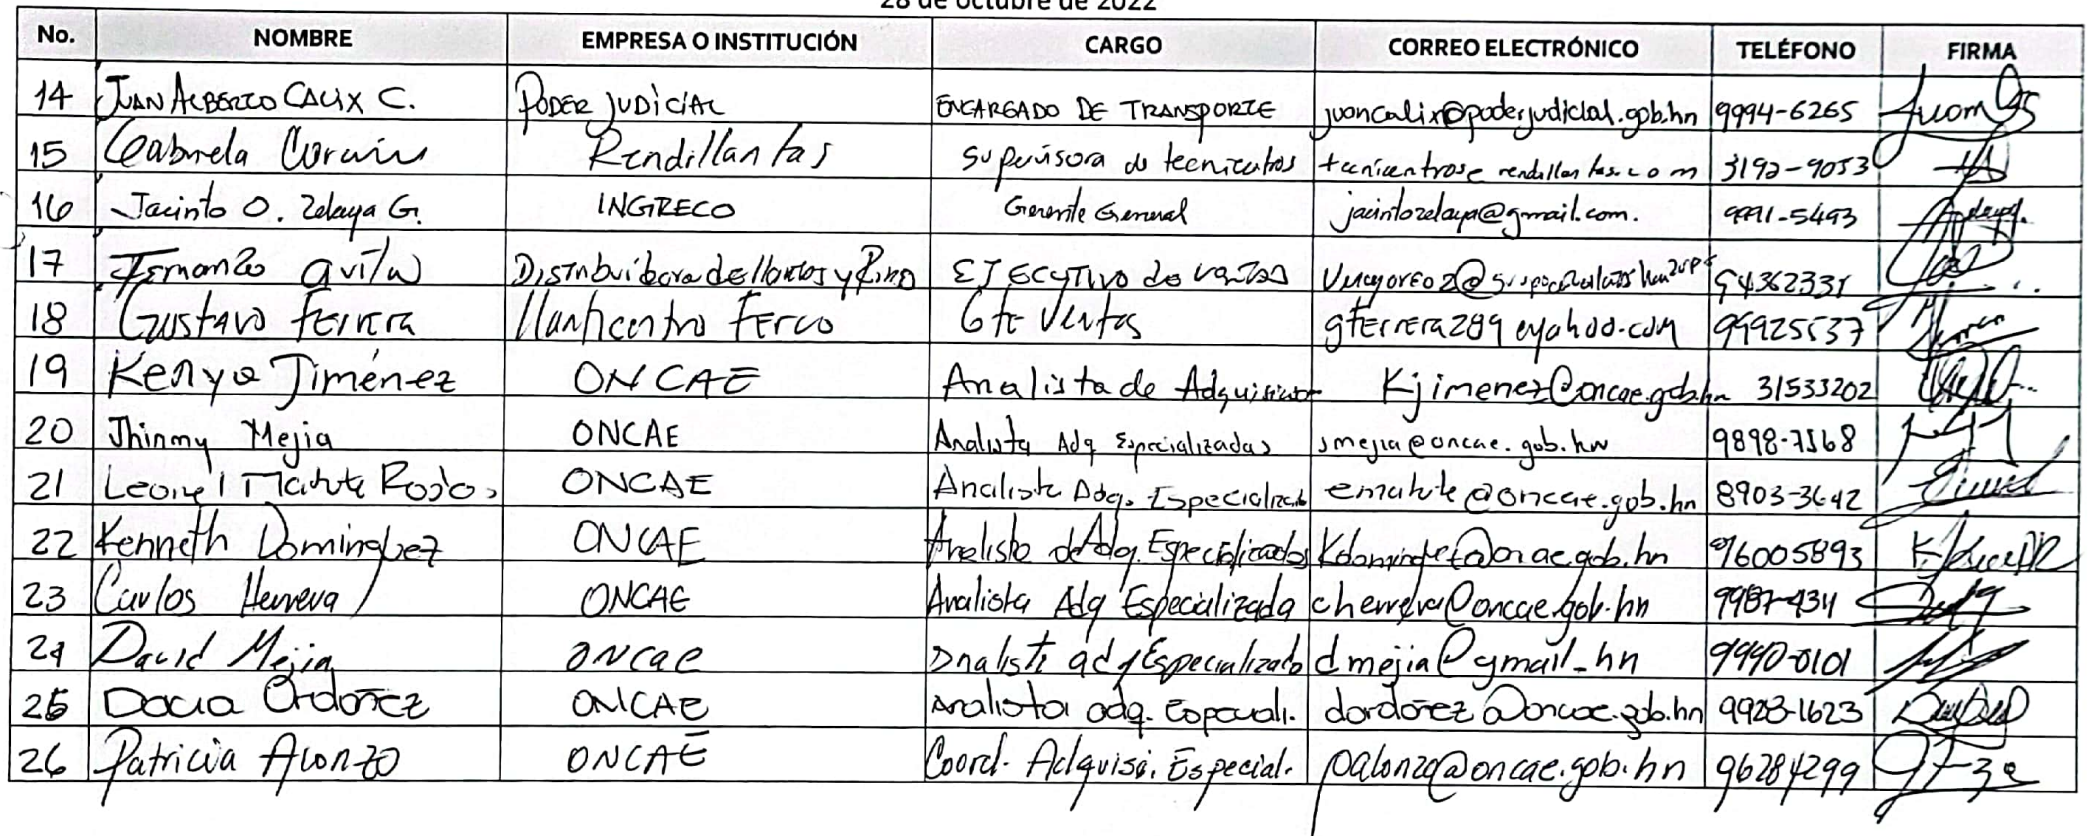 28 de octubre de 2022
No. NOMBRE EMPRESA O INSTITUCIÓN CARGO CORREO ELECTRÓNICO TELÉFONO FIRMA
14 JUAN ALBERTO CALIX C. PODER JUDICIAL ENCARGADO DE TRANSPORTE juancalix@poderjudicial.gob.hn 9994-6265
15 Gabriela Rendillantas Supervisora de tecnicentros tecnicentros@rendillantas.com 3192-9053
16 Jacinto O. Zelaya G. INGRECO Gerente General jacintozelaya@gmail.com. 9991-5493
17 Fernando avila Distribuidora de llantas y Rines EJECUTIVO de ventas 94362331
18 Gustavo Ferrera Llanticentro Ferco Gte Ventas gferrera289@yahoo.com 99925537
19 Kenya Jiménez ONCAE Analista de Kjimenez@oncae.gob.hn 31533202
20 Jhinmy Mejia ONCAE Analista Adq Especializadas jmejia@oncae.gob.hn 9898-7568
21 Leonel Matute ONCAE Analista Adq. ematute@oncae.gob.hn 8903-3642
22 Kenneth Dominguez ONCAE Analista de Adq. Especializadas Kdominguez@oncae.gob.hn 96005893
23 Carlos Herrera ONCAE Analista Adq Especializada cherrera@oncae.gob.hn
24 David Mejia ONCAE Analista adq Especializado dmejia@gmail.hn 9990-0101
25 Dacia Ordoñez ONCAE Analista adq. Especiali. dordoñez@oncae.gob.hn 9928-1623
26 Patricia Alonzo ONCAE Coord. Adquisi. Especial. palonzo@oncae.gob.hn 96284299